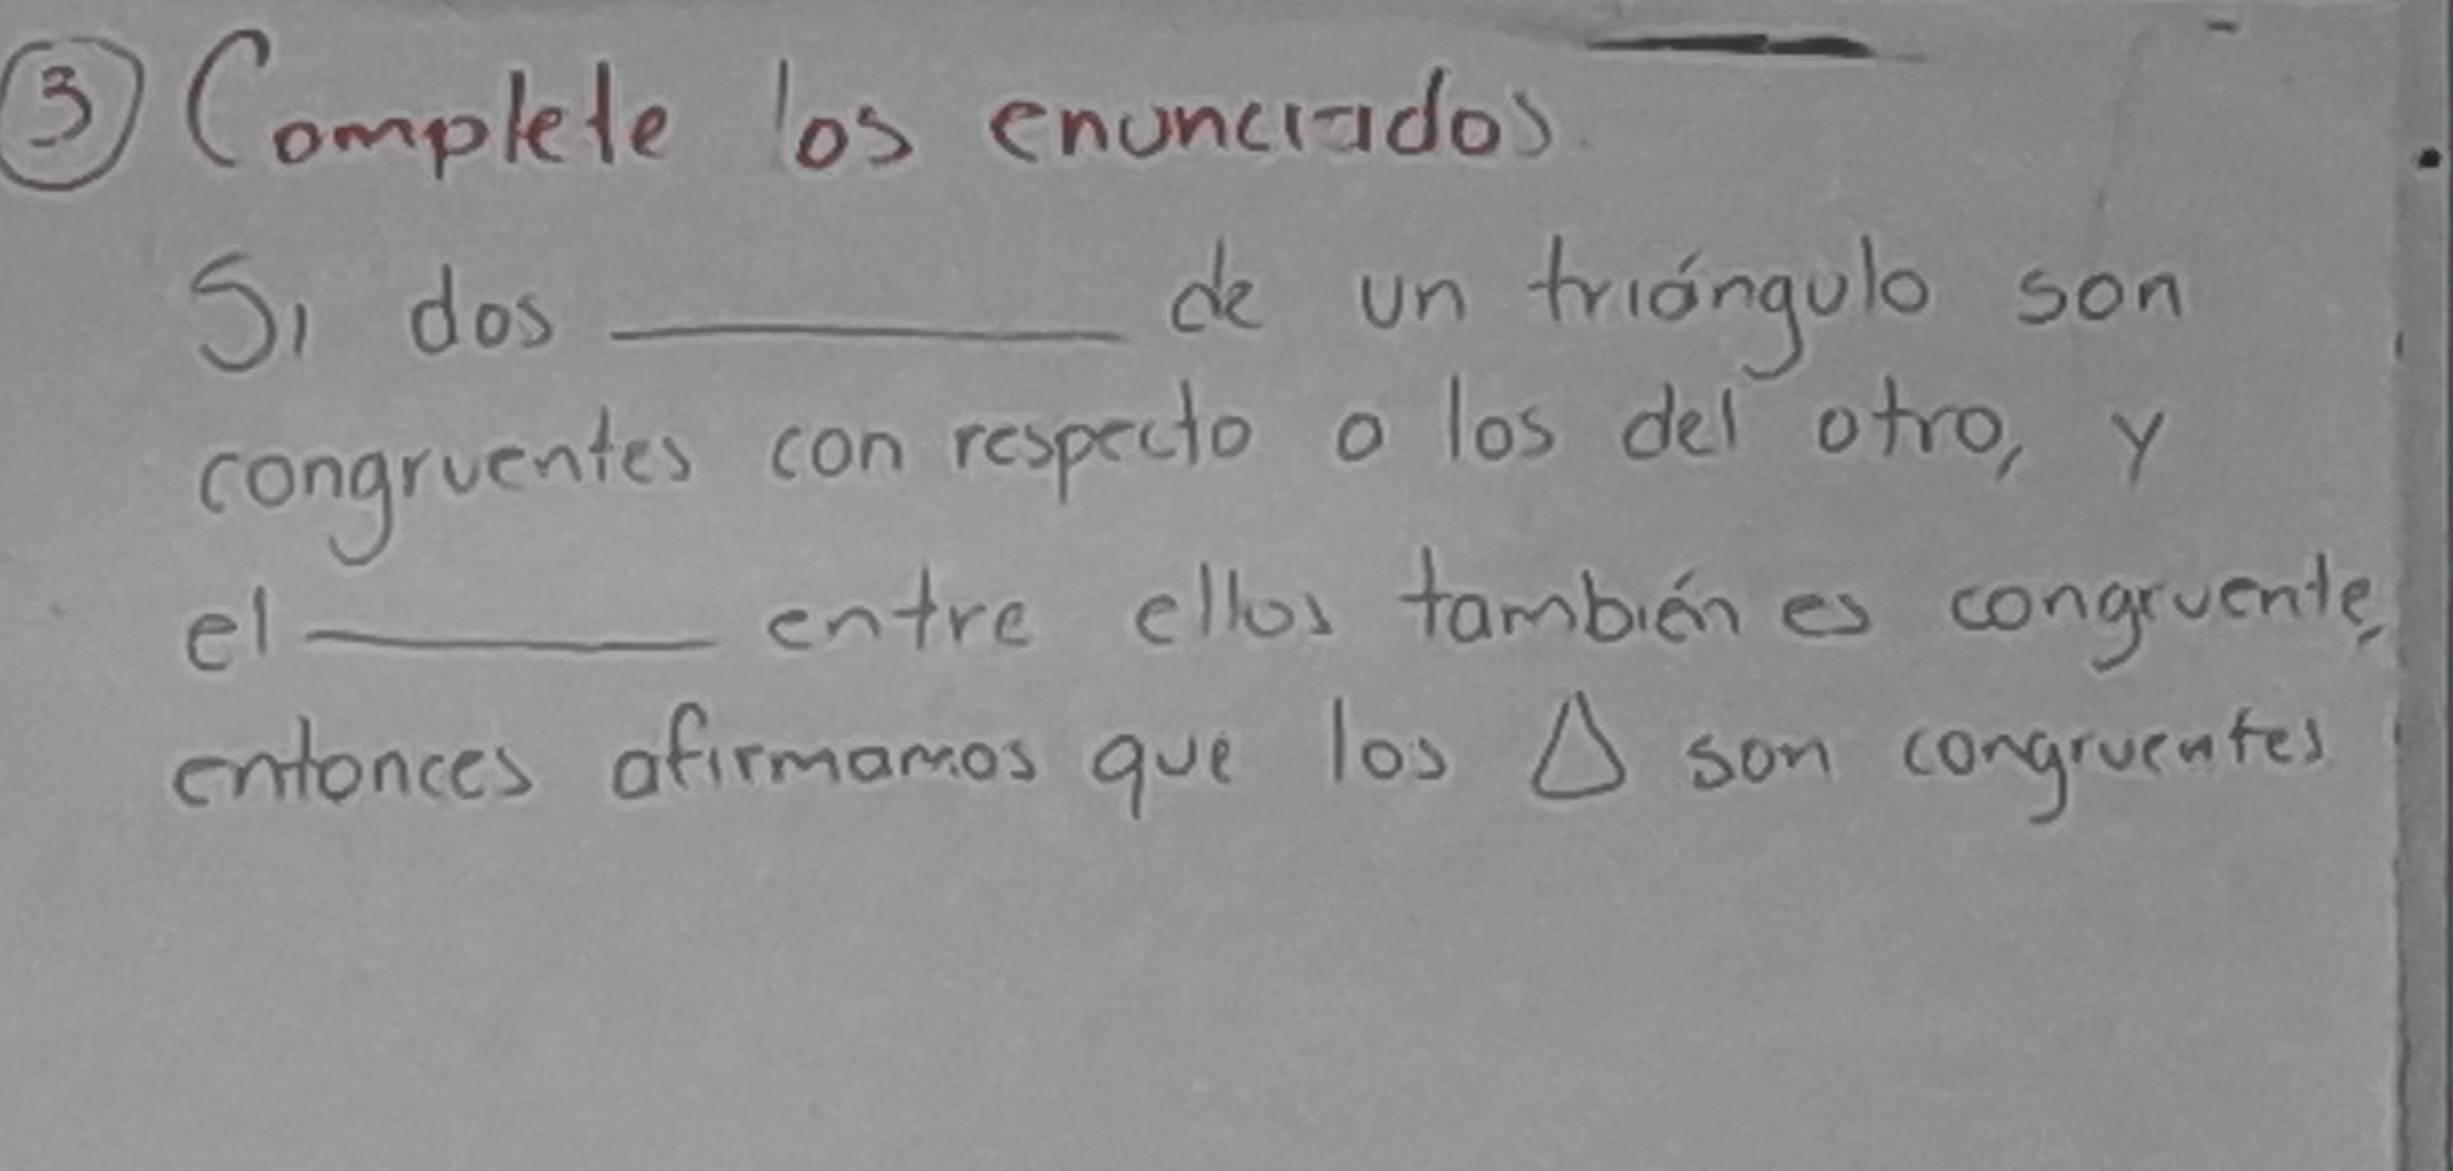 ③ Complete los enunciados.
Si dos __________ de un triángulo son
congruentes con respecto a los del otro, y
el __________ entre ellos también es congruente,
entonces afirmamos que los △ son congruentes